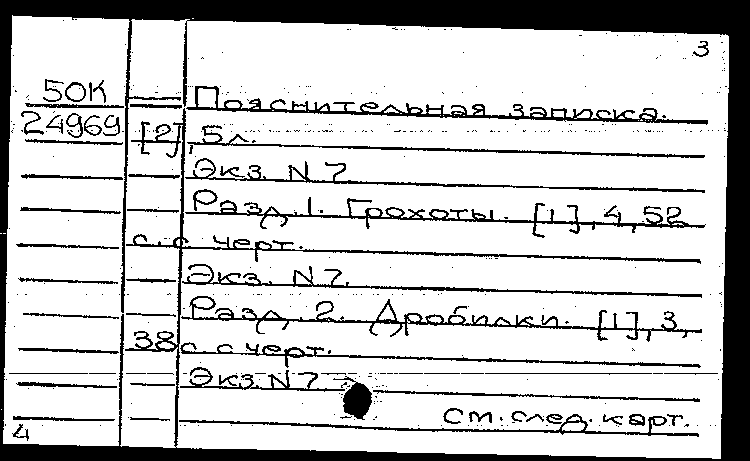 3
50К Пояснительная записка.
24969 [2], 5л.
Экз. N 7
Разд. 1. Грохоты. [1], 4, 52
с. с черт.
Экз. N 7.
Разд. 2. Дробилки. [1], 3,
38с с черт.
Экз. N 7
см. след. карт.
4